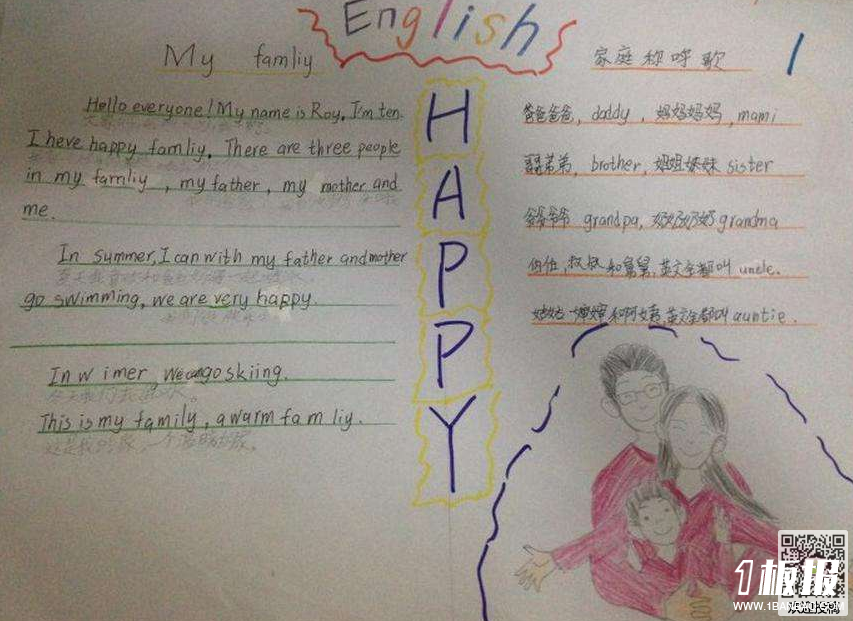 English
My famliy
Hello everyone! My name is Roy. I'm ten.
I heve happy famliy. There are three people
in my famliy, my father, my mother and
me.
In summer, I can with my father and mother
go swimming, we are very happy.
In w imer we can go skiing.
This is my family, a warm fam liy.
这是我的家,一个温暖的家。
HAPPY
家庭称呼歌
爸爸爸爸, daddy, 妈妈妈妈, mami
哥哥弟弟, brother, 姐姐妹妹 sister
爷爷爷爷 grandpa, 奶奶奶奶 grandma
伯伯,叔叔和舅舅,英文全都叫 uncle.
姑姑婶婶和阿姨,英文全都叫 auntie.
1板报
WWW.1BANBAO.COM
欢迎投稿